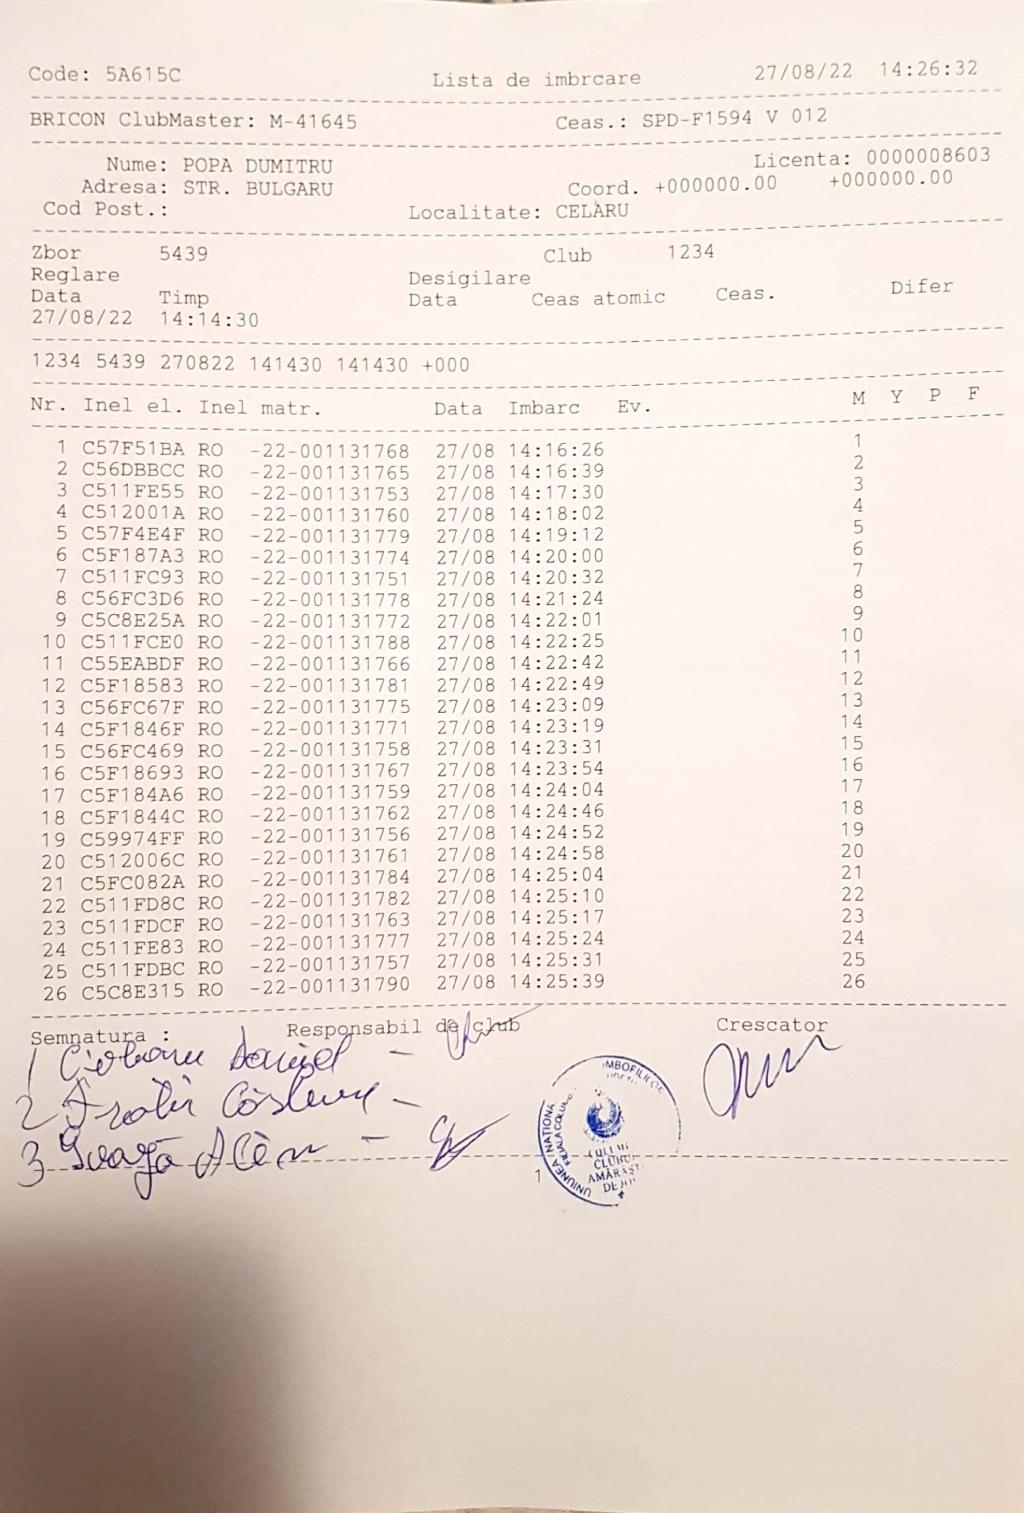 Code: 5A615C Lista de imbrcare 27/08/22 14:26:32
BRICON ClubMaster: M-41645 Ceas.: SPD-F1594 V 012
Nume: POPA DUMITRU Licenta: 0000008603
Adresa: STR. BULGARU Coord. +000000.00 +000000.00
Cod Post.: Localitate: CELARU
Zbor 5439 Club 1234
Reglare Desigilare
Data Timp Data Ceas atomic Ceas. Difer
27/08/22 14:14:30
1234 5439 270822 141430 141430 +000
Nr. Inel el. Inel matr. Data Imbarc Ev. M Y P F
1 C57F51BA RO -22-001131768 27/08 14:16:26 1
2 C56DBBCC RO -22-001131765 27/08 14:16:39 2
3 C511FE55 RO -22-001131753 27/08 14:17:30 3
4 C512001A RO -22-001131760 27/08 14:18:02 4
5 C57F4E4F RO -22-001131779 27/08 14:19:12 5
6 C5F187A3 RO -22-001131774 27/08 14:20:00 6
7 C511FC93 RO -22-001131751 27/08 14:20:32 7
8 C56FC3D6 RO -22-001131778 27/08 14:21:24 8
9 C5C8E25A RO -22-001131772 27/08 14:22:01 9
10 C511FCE0 RO -22-001131788 27/08 14:22:25 10
11 C55EABDF RO -22-001131766 27/08 14:22:42 11
12 C5F18583 RO -22-001131781 27/08 14:22:49 12
13 C56FC67F RO -22-001131775 27/08 14:23:09 13
14 C5F1846F RO -22-001131771 27/08 14:23:19 14
15 C56FC469 RO -22-001131758 27/08 14:23:31 15
16 C5F18693 RO -22-001131767 27/08 14:23:54 16
17 C5F184A6 RO -22-001131759 27/08 14:24:04 17
18 C5F1844C RO -22-001131762 27/08 14:24:46 18
19 C59974FF RO -22-001131756 27/08 14:24:52 19
20 C512006C RO -22-001131761 27/08 14:24:58 20
21 C5FC082A RO -22-001131784 27/08 14:25:04 21
22 C511FD8C RO -22-001131782 27/08 14:25:10 22
23 C511FDCF RO -22-001131763 27/08 14:25:17 23
24 C511FE83 RO -22-001131777 27/08 14:25:24 24
25 C511FDBC RO -22-001131757 27/08 14:25:31 25
26 C5C8E315 RO -22-001131790 27/08 14:25:39 26
Semnatura : Responsabil de club Crescator
1
2
3
UNIUNEA NATIONA
DE
1